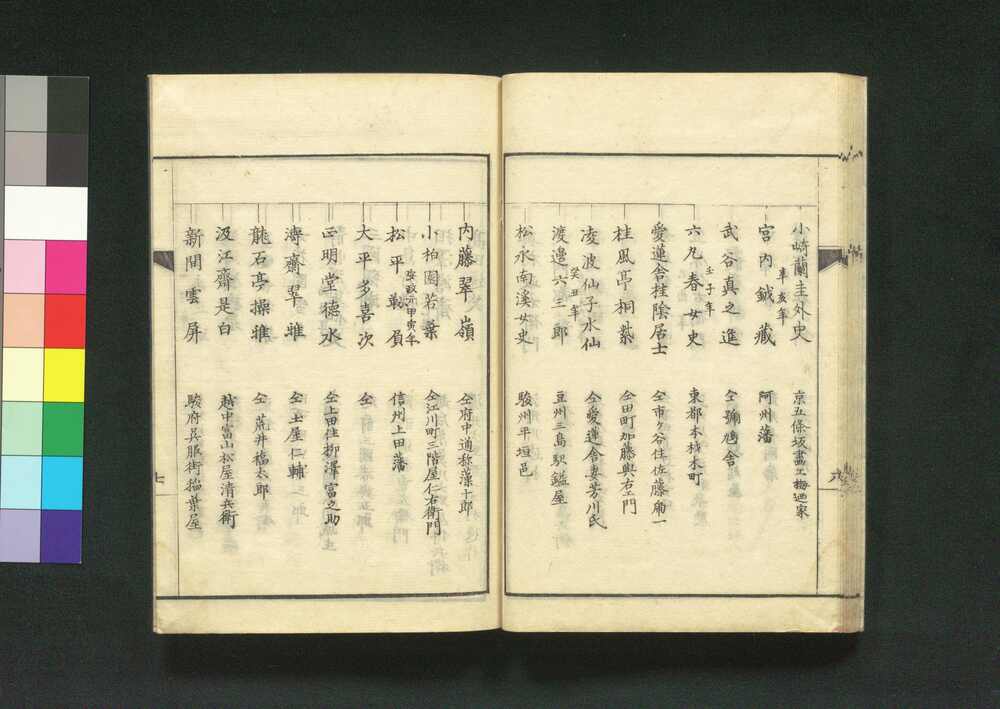 小崎蘭圭外史 京五條坂畫工梅廼家
辛亥年
宮内鉞藏 阿州藩
武谷真之進 仝號鳩舎
壬子年
六九春女史 東都本材木町
愛蓮舎桂陰居士 仝市ヶ谷住佐藤廟一
桂風亭桐紫 仝田町加藤與右エ門
凌波仙子水仙 仝愛蓮舎妻芳川氏
癸丑年
渡邉六三郎 豆州三島駅鑑屋
松永南溪女史 駿州平垣邑
六
内藤翠嶺 仝府中通称藻十郎
小柏園若葉 仝江川町三階屋仁右衛門
安政元甲寅年
松平 信州上田藩
大平多喜次 仝
正明堂德水 仝上田住柳澤富之助
濤齋翠雖 仝土屋仁輔
龍石亭操雖 仝荒井福太郎
汲江齋是白 越中富山松屋清兵衛
新開雲屏 駿府呉服街稲葉屋
七